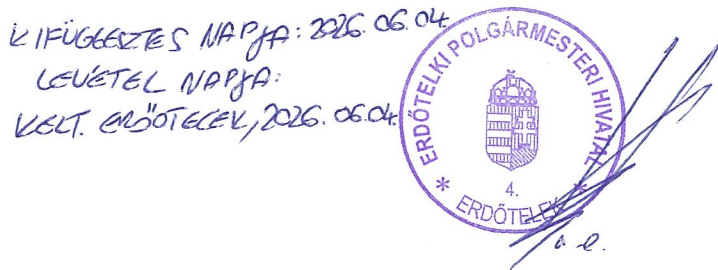 KIFÜGGESZTES NAPJA: 2026.06.04.
LEVÉTEL NAPJA:
KELT. ERDŐTELEK, 2026.06.04.
ERDŐTELKI POLGÁRMESTERI HIVATAL
4.
* ERDŐTELEK *